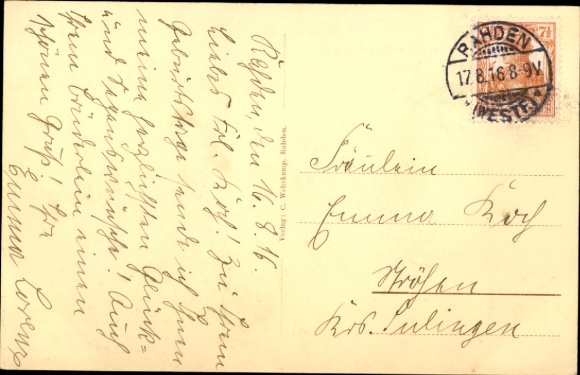 Rahden, den 16.8.16.
Liebes Frl. Koch! Zu Ihrem
Geburtstage sende ich Ihnen
meine herzlichsten Glück-
und Segenswünsche! Auch
Ihrem Brüderlein einen
schönen Gruß! Ihre
Emma Lorenz
Verlag: C. Wehrkamp, Rahden.
RAHDEN
17.8.16.8-9V.
*(WESTF.)*
7½
Fräulein
Emma Koch
Ströhen
Krs. Sulingen